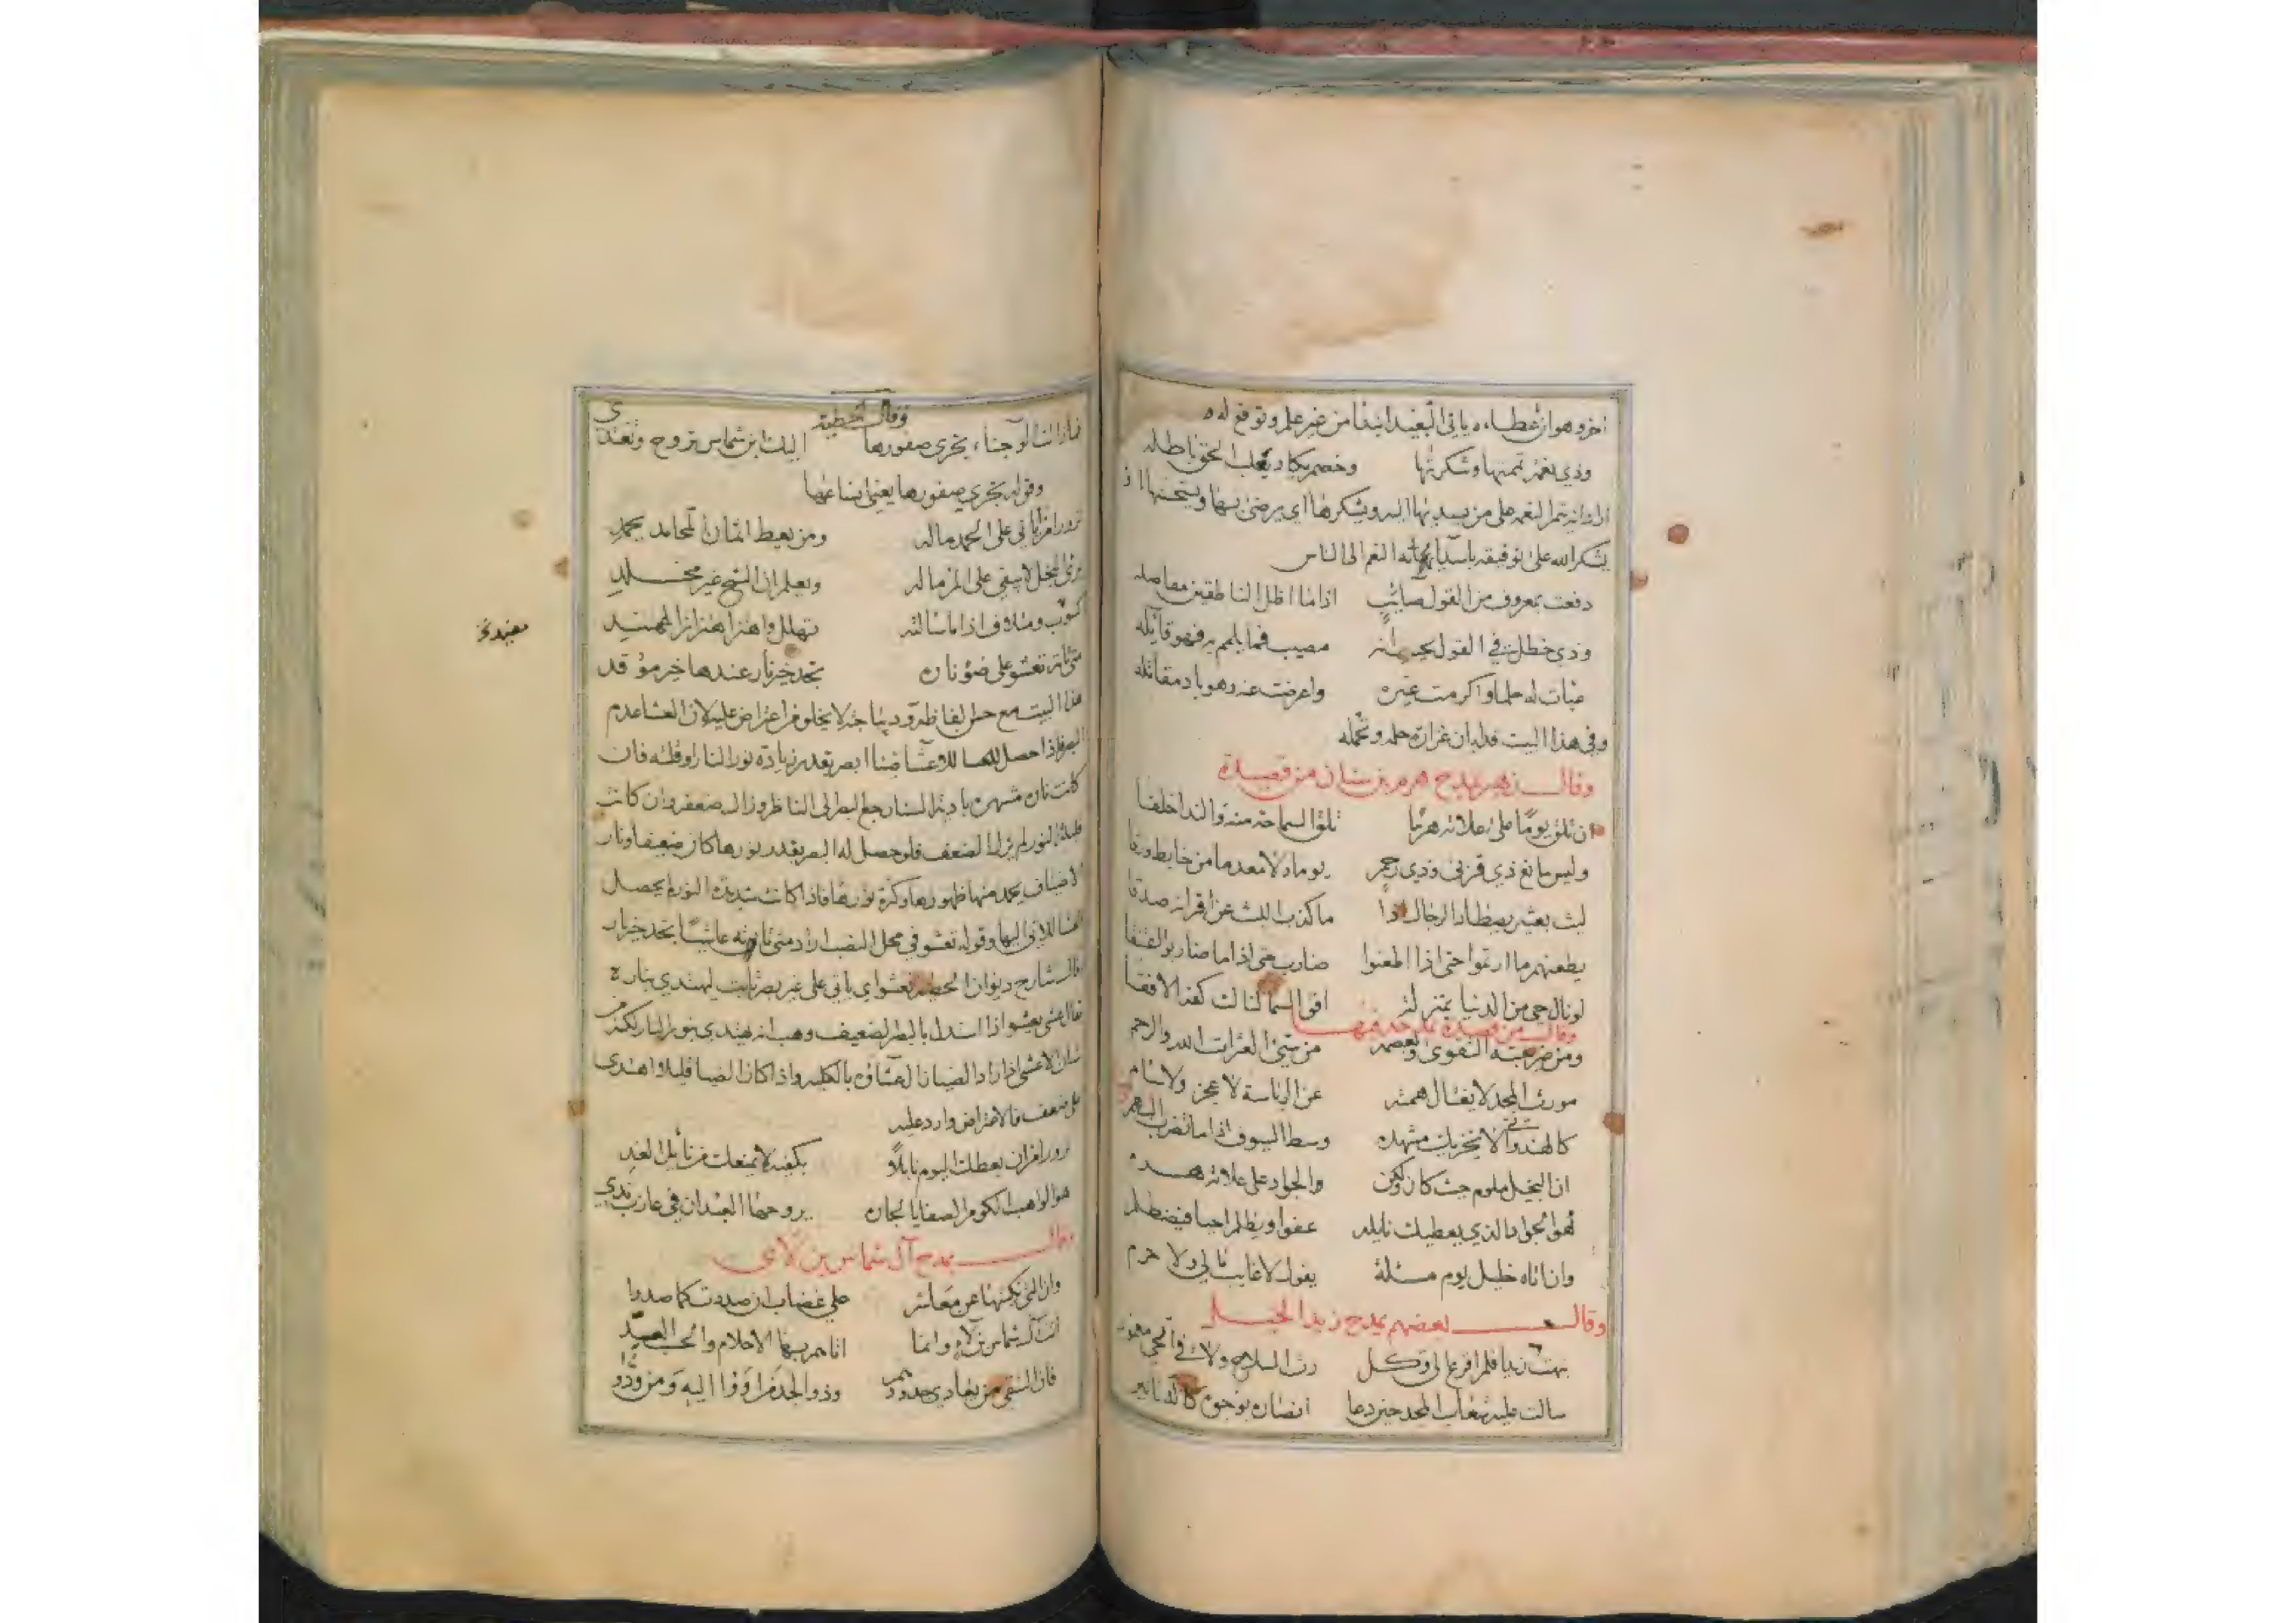 اخر وهو ان عطاءه ياتى البعيد ايضا من غير علم وتوقع له
وذي نعمة تممتها وشكرتها وخصم يكاد يغلب الحق باطله
اراد انه تمم النعمة على من يسديها اليه ويشكرها اى يرضى بها ويستحسنها او
يشكر الله على توفيقه النعم الى الناس
دفعت بمعروف من القول صائب اذا ما اظل الناطقين مفاصله
وذي خطل في القول يحسب انه مصيب فما يلمم به فهو قائله
عبات له حلما واكرمت غيره واعرضت عنه وهو باد مقاتله
وفى هذا البيت غزارة حلمه وتحمله
وقال زهير يمدح هرم بن سنان من قصيدة
ان تلق يوما على علاته هرما تلق السماحة منه والندا خلقا
وليس مانع ذي قربى وذي رحم يوما ولا معدما من خابط ورقا
ليث بعثر يصطاد الرجال اذا ما كذب الليث عن اقرانه صدقا
يطعنهم ما ارتموا حتى اذا اطعنوا ضارب حتى اذا ما ضاربوا اعتنقا
لو نال حي من الدنيا بمنزلة افق السما لنالت كفه الافقا
وقال من قصيدة يمدحه بها
ومن ضريبته التقوى ويعصمه من سيئ العثرات الله والرحم
مورث المجد لا يغتال همته عن الرئاسة لا عجز ولا سام
كالهندواني لا يخزيك مشهده وسط السيوف اذا ما تضرب البهم
ان البخيل ملوم حيث كان ولكن والجواد على علاته هرم
هو الجواد الذي يعطيك نايله عفوا ويظلم احيانا فيظطلم
وان اتاه خليل يوم مسئلة يقول لا غايب مالى ولا حرم
وقال بعضهم يمدح زيد الخيل
رث السلاح ولا في الحي
سالت عليه شعاب المجد حين دعا انصاره بوجوه كالدنانير
وقال الحطية
جناء يجرى ضفورها اليك ابن شماس تروح وتغتدى
وقوله يجري ضفورها يعنى
تزور امرأ ياتى على الحمد ماله ومن يعط اثمان المحامد يحمد
يرى البخل لا يبقى على المرء ماله ويعلم ان الشح غير مخلد
كسوب ومتلاف اذا ما سالته تهلل واهتز اهتزاز المهند
متى تاته تعشو على ضوء ناره تجد خير نار عندها خير موقد
هذا البيت مع حسن الفاظه لا يخلو من اعتراض عليه لان العشا عدم
البصر فاذا حصل للاعشا ابصر بقدر زيادة نور النار وقلته فان
كانت ناره النظر الى الناظر وزال ضعفه وان كانت
قليلة النور لم يزل الضعف فلو حصل له البصر بقدر نورها كان ضعيفا ونار
الاضياف يحمد منها ظهورها وكثرة نورها فاذا كانت شديدة النور لم يحصل
العشا للاتى اليها وقوله تعشو في محل النصب اراد متى تاته عاشيا تجد خير نار
قال شارح ديوان الحطية تعشو اي ياتى على غير بصر ثابت ليهتدي بناره
يقال عشى يعشو اذا استدل بالبصر الضعيف وهب انه يهتدي بنور النار لكن من
شان الاعشى اذا زاد الضيا بالكلية واذا كان الضيا قليلا اهتدى
على ضعف فالاعتراض وارد عليه
تزور امرأ ان يعطك اليوم نايلا بكفيه لا يمنعك من نايل الغد
هو الواهب الكوم الصفايا لجاره يروحها العبدان في عازب ندى
وقال يمدح آل شماس بن لاى
وان التى نكبتها عن معاشر على غضاب ان صددت كما صدوا
اتت آل شماس بن لاى وانما اتاهم بها الاحلام والحسب العد
فان الشقى من تعادي صدورهم وذو الجد من لانوا اليه ومن ودوا